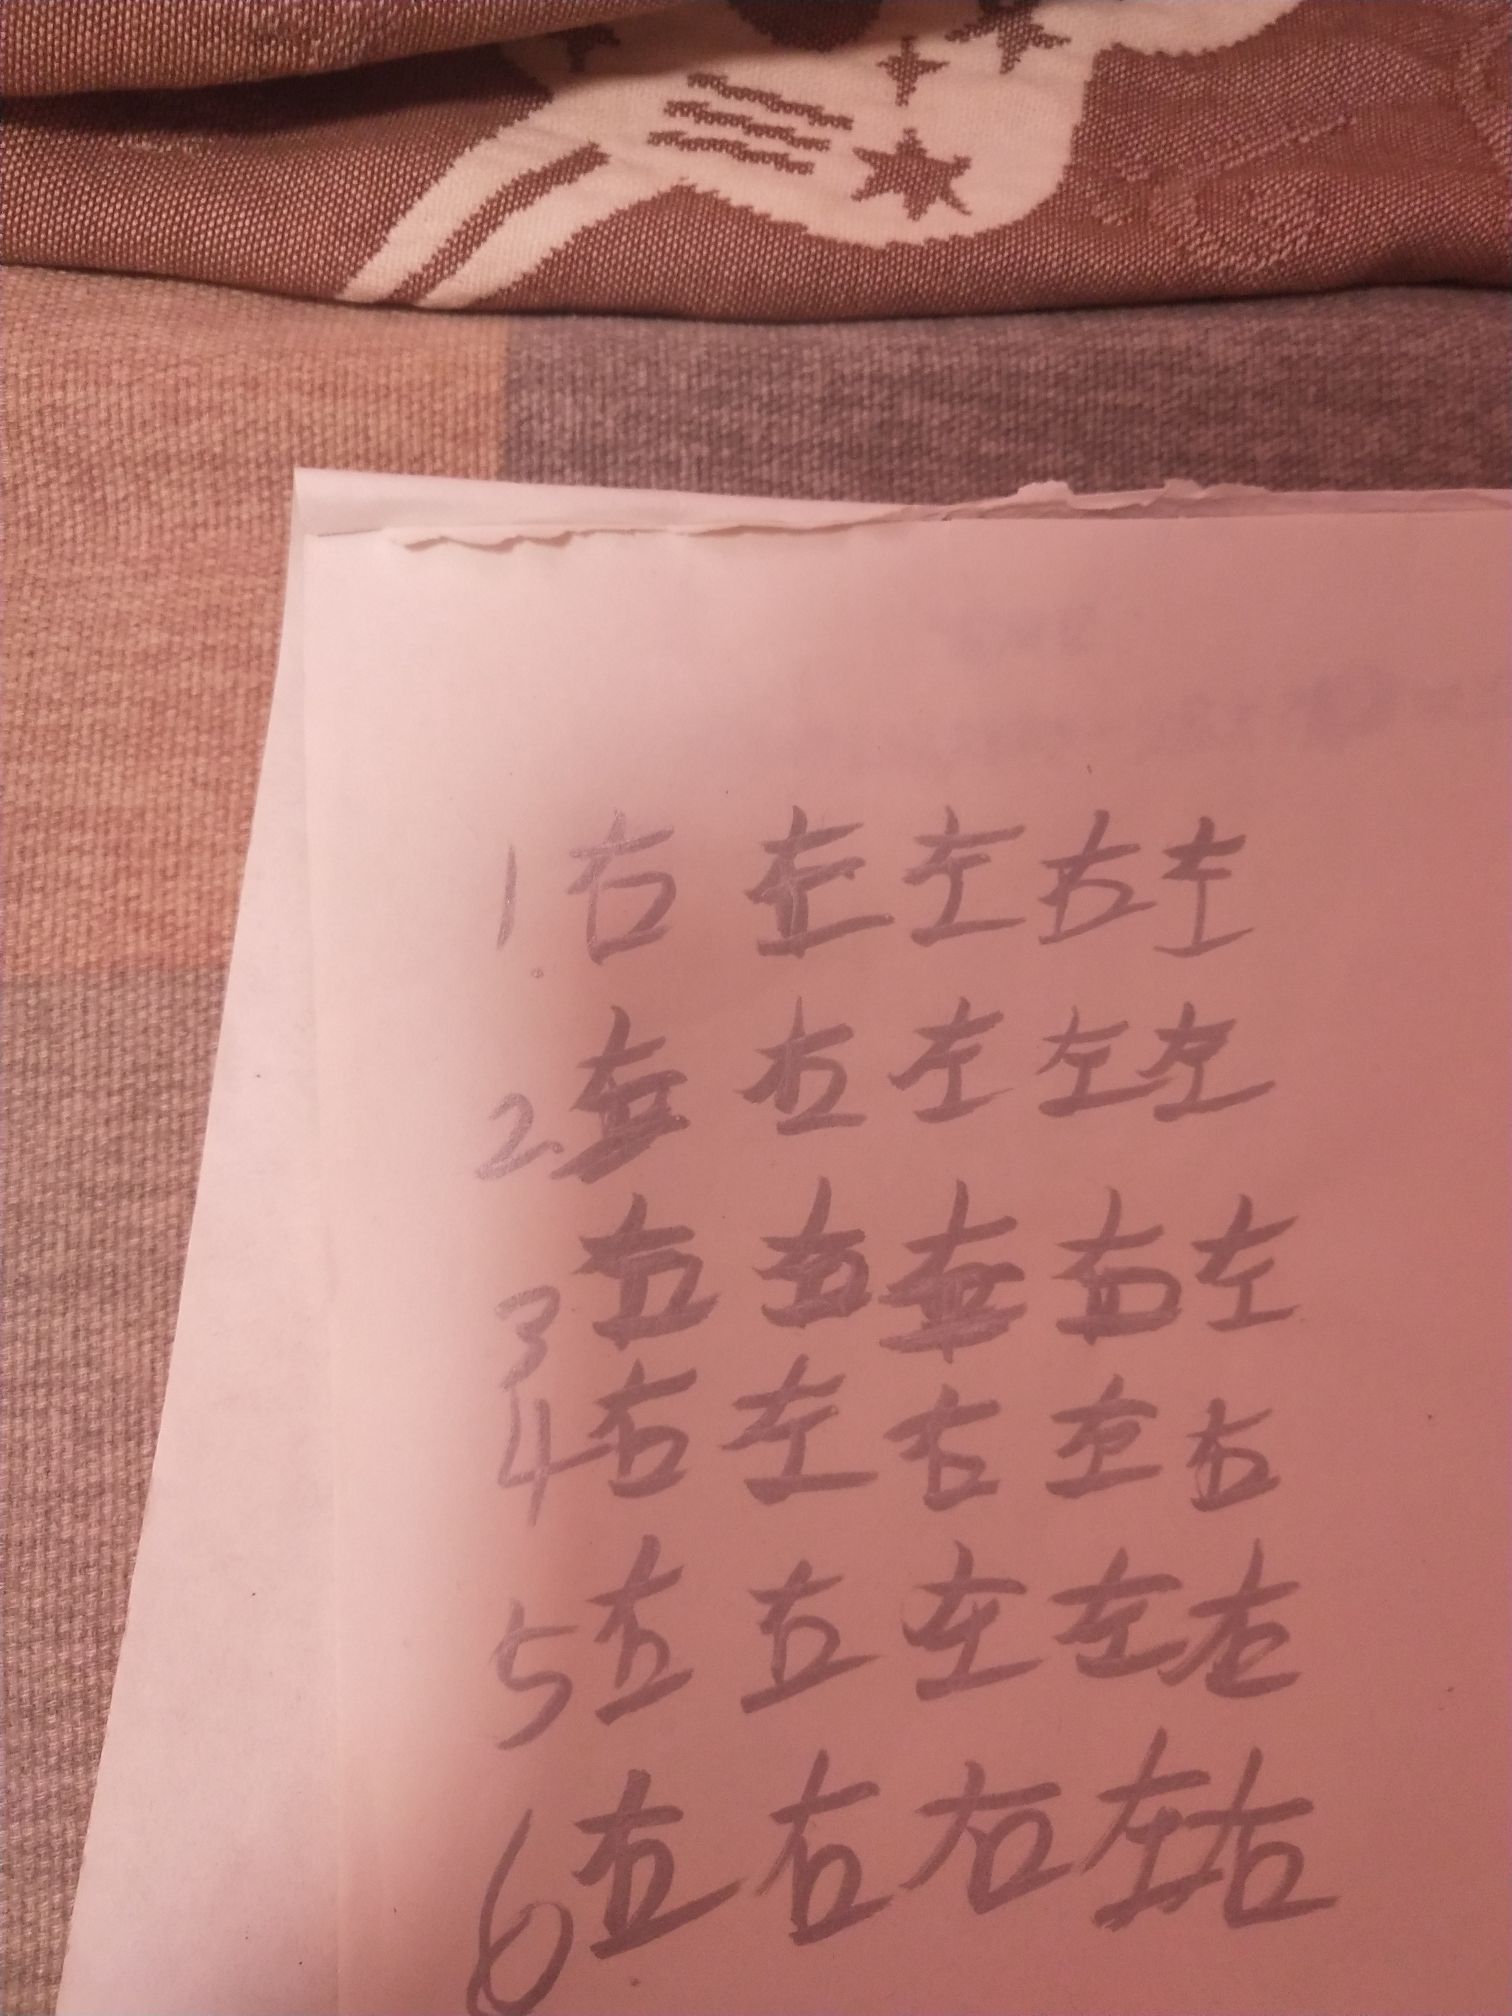 1 右 左 左 右 左
2. 右 左 左 左
3 左
4 右 左 右 左 右
5 右 右 左 左 右
6 右 右 右 左 右